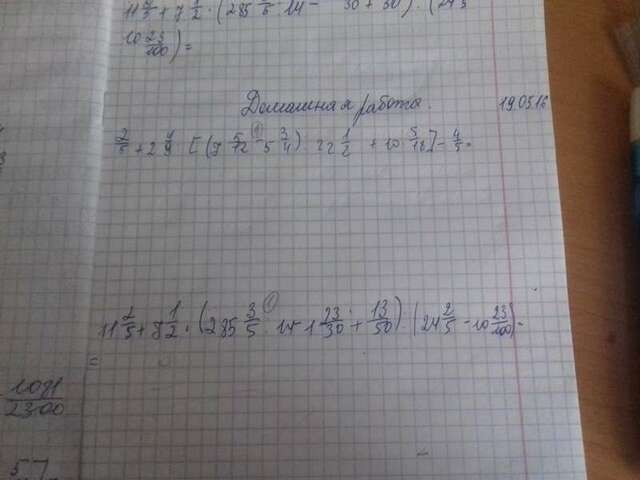 11 2/5 + 7 1/2 · (285 : 14 - 30 + 50) · (24
10 23/100) =
Домашняя работа. 19.05.16
2/5 + 2 4/9 · [(7 5/12 - 5 3/4) · 22 1/2 + 10 5/18] - 4/5 =
11 2/5 + 8 1/2 · (285 3/5 : 14 - 1 23/30 + 13/50) · (24 2/5 - 10 23/100) =
=
1091/2300
57